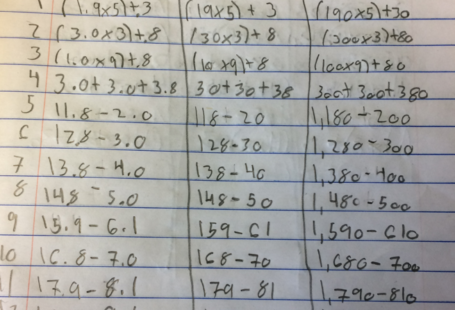 1 (1.9x5)+.3 (19x5) + 3 (190x5)+30
2 (3.0x3)+.8 (30x3) + 8 (300x3)+80
3 (1.0x9)+.8 (10x9)+8 (100x9)+80
4 3.0+3.0+3.8 30+30+38 300+300+380
5 11.8-2.0 118-20 1,180-200
6 12.8-3.0 128-30 1,280-300
7 13.8-4.0 138-40 1,380-400
8 14.8-5.0 148-50 1,480-500
9 15.9-6.1 159-61 1,590-610
10 16.8-7.0 168-70 1,680-700
11 17.9-8.1 179-81 1,790-810